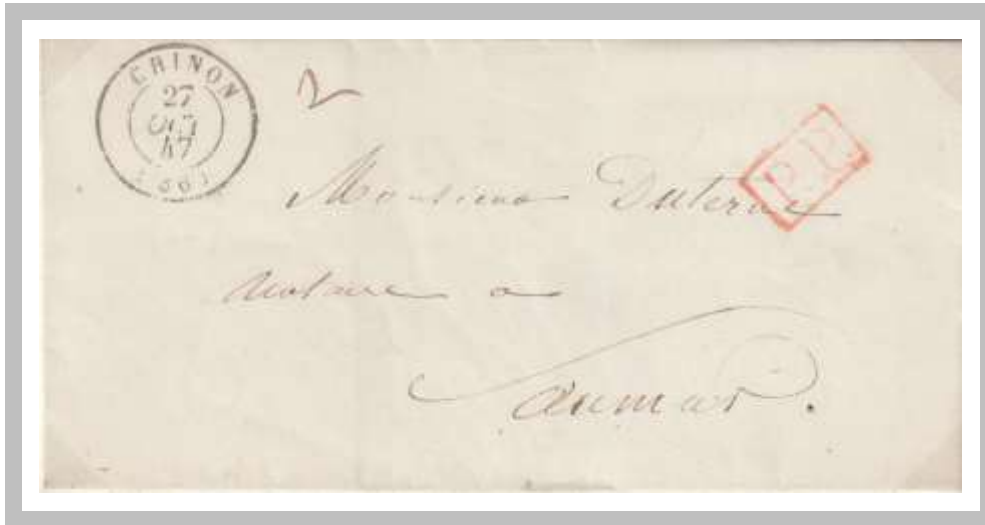 CHINON
27
OCT
47
(36)
2
P.P.
Monsieur Duterme
Notaire a
Saumur.